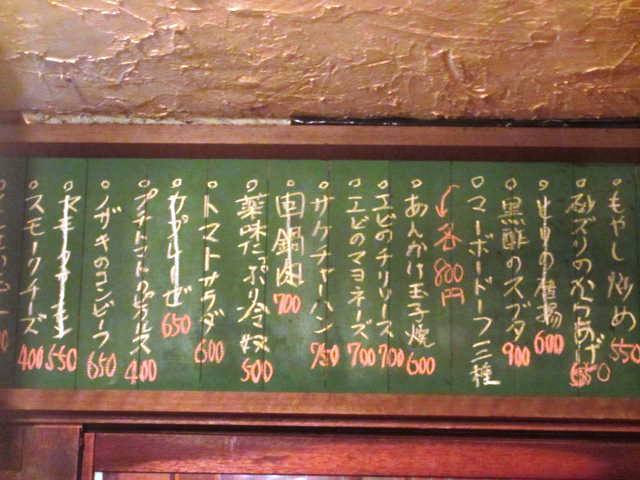 もやし炒め 550
砂ズリのからあげ 550
600
黒酢のスブタ 900
マーボードーフ三種
各800円
あんかけ玉子焼 600
エビのチリソース 700
エビのマヨネーズ 700
サケチャーハン 750
回鍋肉 700
薬味たっぷり冷奴 500
トマトサラダ 600
カプレーゼ 650
プチトマトのピクルス 400
ノザキのコンビーフ 650
550
スモークチーズ 400